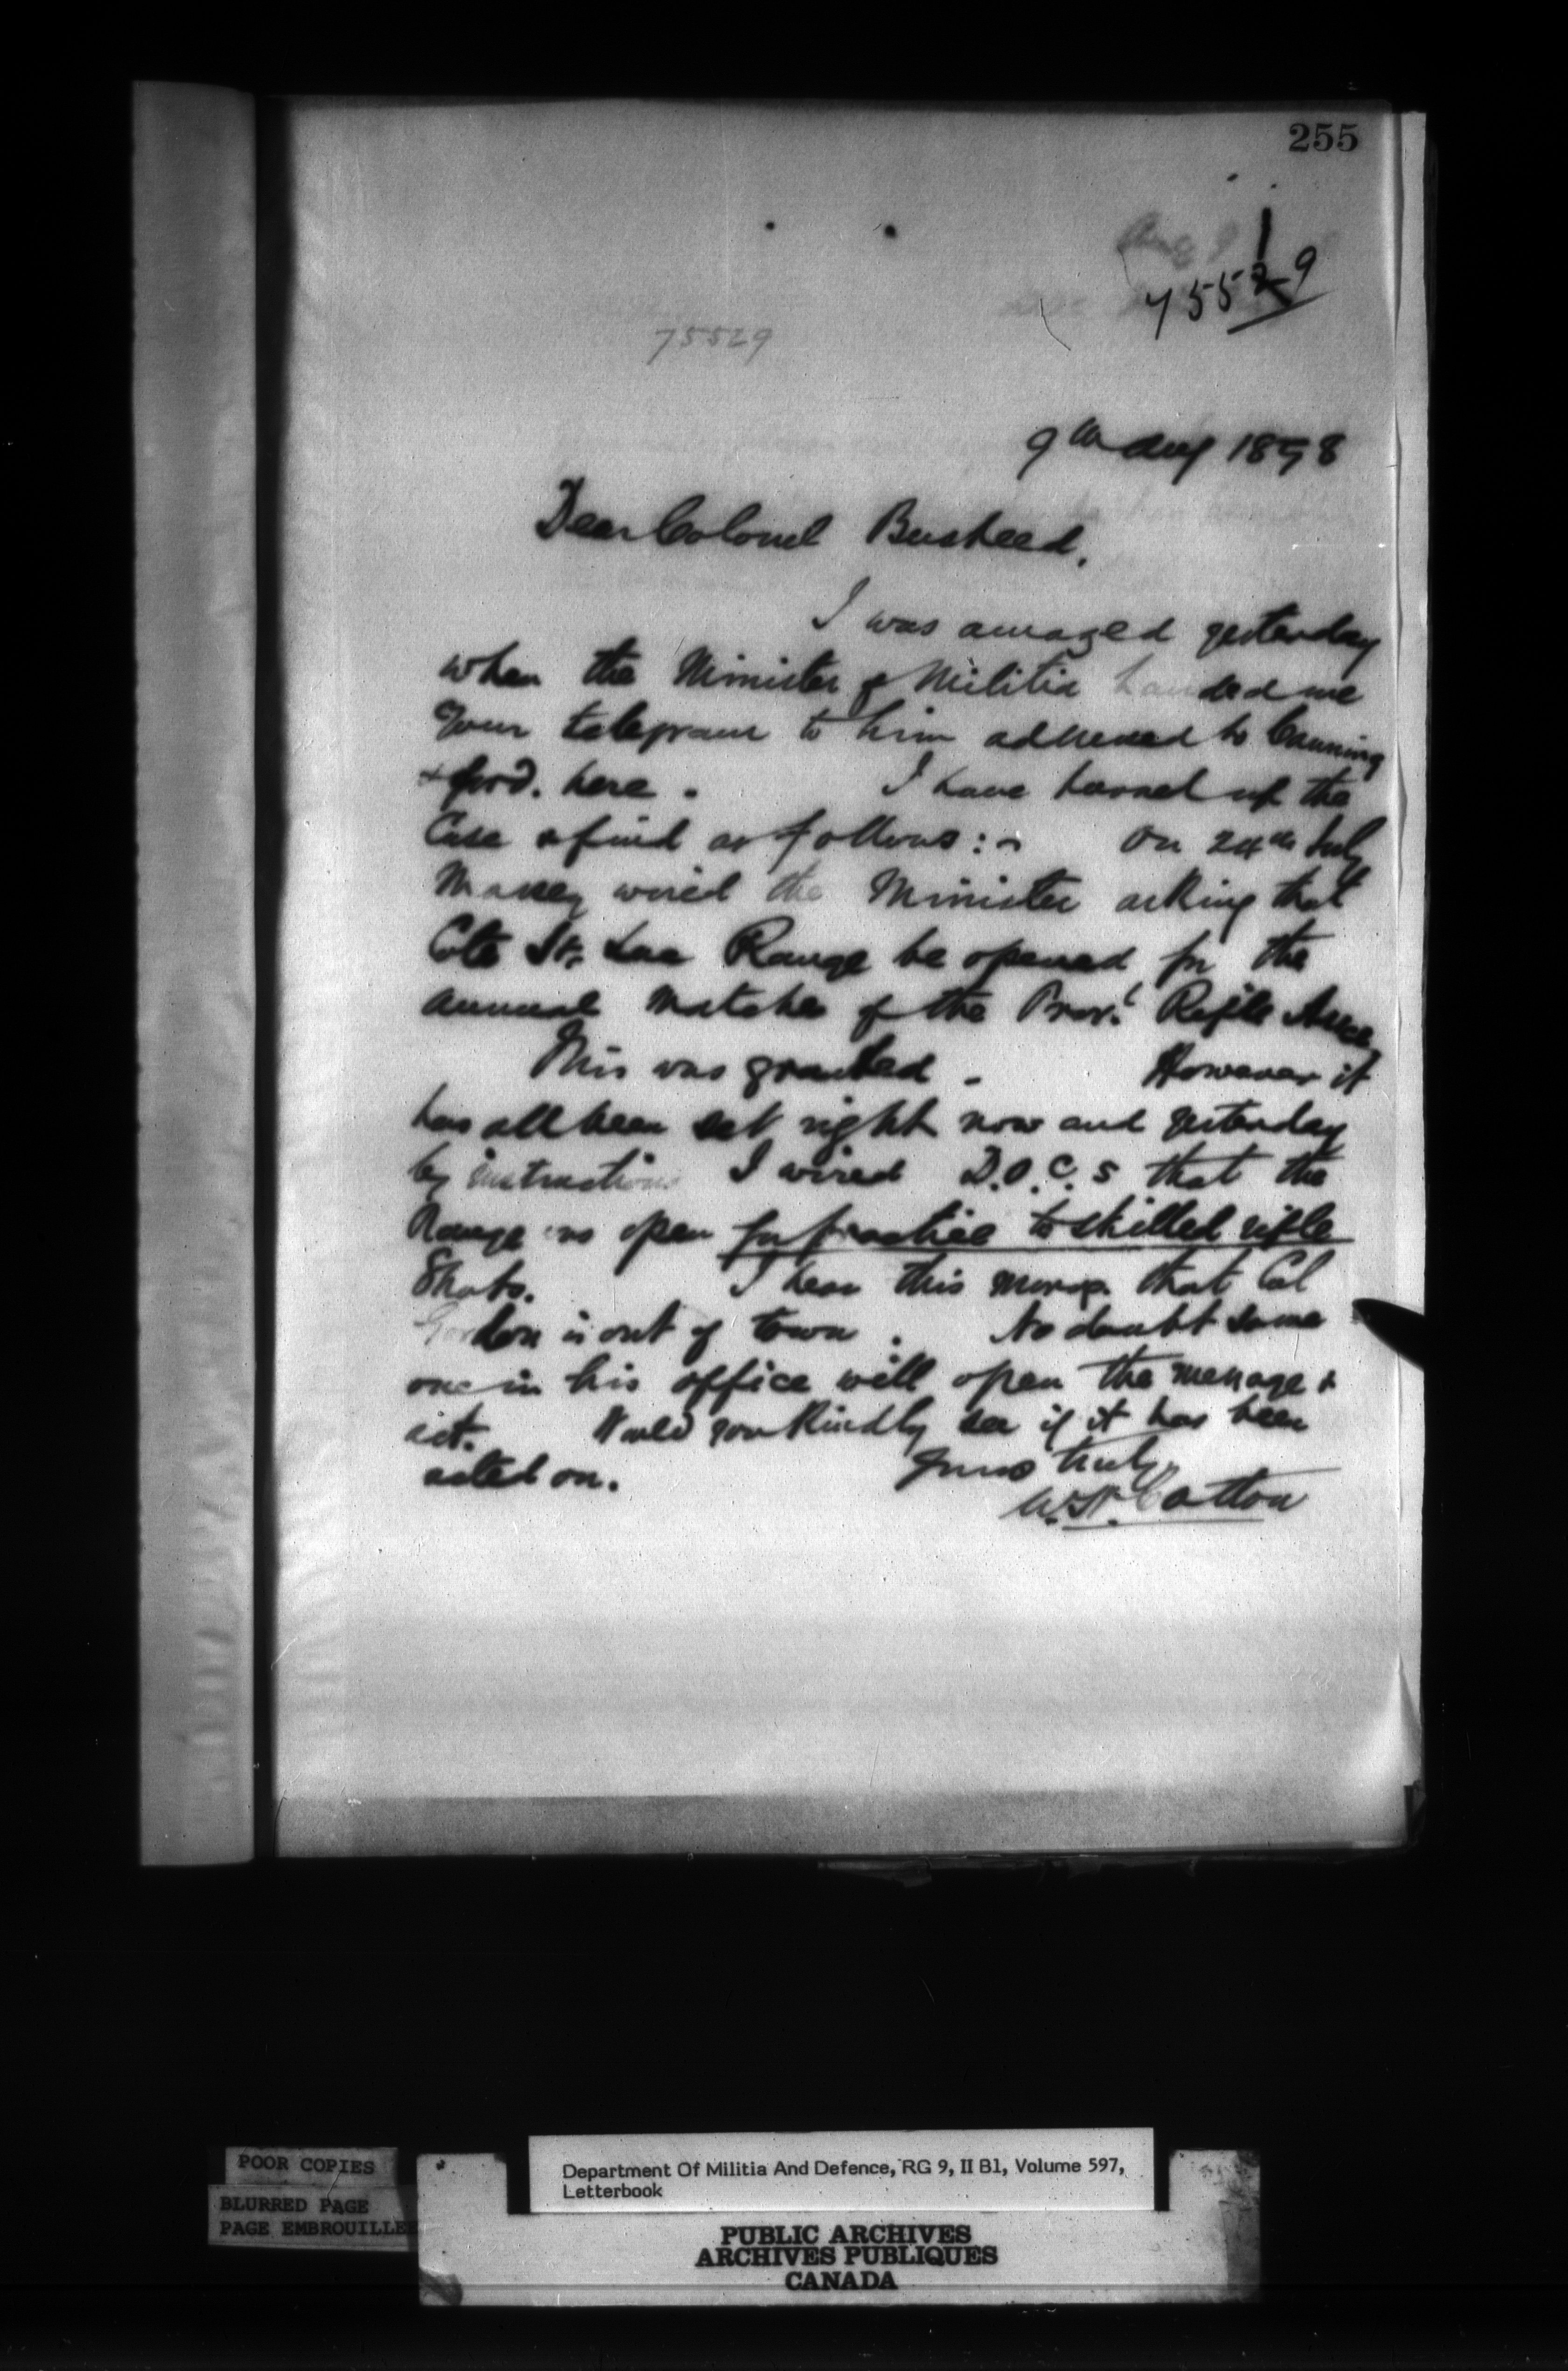 255
75529
75529
9th Aug 1898
Dear Colonel Busteed,
I was amazed yesterday
when the Minister of Militia handed me
Your telegram to him addressed to
here. I have looked up the
Case & find as follows:- On 24th July
Massey wired the Minister asking that
Cote St. Luc Range be opened for the
annual matches of the Prov.l Rifle Assn
This was granted - However it
has all been set right now and yesterday
by instructions I wired D.O.C. 5 that the
Range is open for practice to skilled rifle
Shots. I hear this morng. that Col
Gordon is out of town. No doubt some
one in his office will open the message &
act. Would you kindly see if it has been
acted on. Yours truly,
W.H. Cotton
POOR COPIES
BLURRED PAGE
PAGE EMBROUILLEE
Department Of Militia And Defence, RG 9, II B1, Volume 597,
Letterbook
PUBLIC ARCHIVES
ARCHIVES PUBLIQUES
CANADA